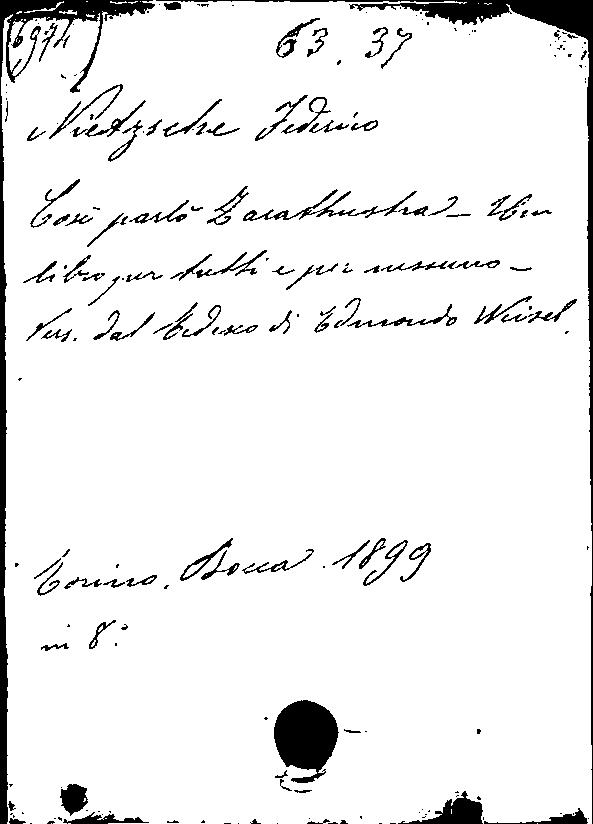 6974
63. 37
Nietzsche Federico
Così parlò Zarathustra – Un
libro per tutti e per nessuno –
Vers. dal Tedesco di Edmondo Weisel.
Torino, Bocca 1899
in 8°